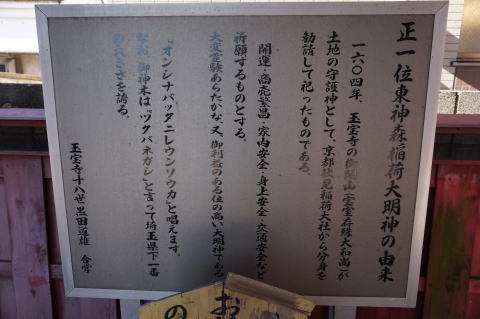 正一位東神森稲荷大明神の由来
一六〇四年、玉宝寺の御開山(宝室存殊大和尚)が
土地の守護神として、京都伏見稲荷大社から分身を
勧請して祀ったものである。
開運・商売繁昌・家内安全・身上安全・交通安全など
祈願するものとする。
大変霊験あらたかな、又、御利益のある位の高い大明神である
『オンシナバッタニレウンソウカ』と唱えます。
なお、御神木は、『ヅクバネガシ』と言って埼玉県下一番
の大きさを誇る。
玉宝寺十八世 黒田道雄 合掌
お
の